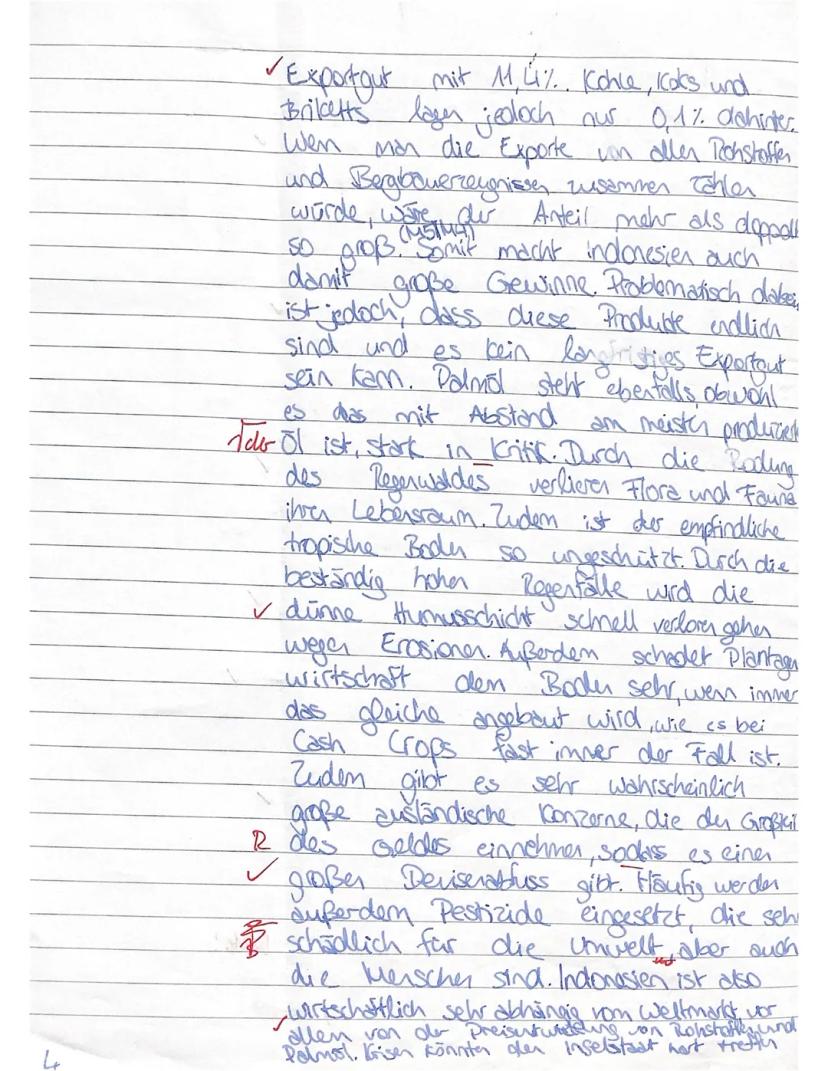 ✓ Exportgut mit 11,4%. Kohle, Koks und
Briketts lagen jedoch nur 0,1% dahinter.
Wenn man die Exporte von allen Rohstoffen
und Bergbauerzeugnissen zusammen zählen
würde, wäre der Anteil mehr als doppelt
so groß. (M5/M4) Somit macht indonesien auch
damit große Gewinne. Problematisch dabei
ist jedoch, dass diese Produkte endlich
sind und es kein langfristiges Exportgut
sein kann. Palmöl steht ebenfalls, obwohl
es das mit Abstand am meisten produzierte
der Öl ist, stark in Kritik. Durch die Rodung
des Regenwaldes verlieren Flora und Fauna
ihren Lebensraum. Zudem ist der empfindliche
tropische Boden so ungeschützt. Durch die
beständig hohen Regenfälle wird die
✓ dünne Humusschicht schnell verloren gehen
wegen Erosionen. Außerdem schadet Plantagen
wirtschaft dem Boden sehr, wenn immer
das gleiche angebaut wird, wie es bei
Cash Crops fast immer der Fall ist.
Zudem gibt es sehr wahrscheinlich
große ausländische Konzerne, die den Großteil
R des Geldes einnehmen, sodass es einen
✓ großen Devisenabfluss gibt. Häufig werden
außerdem Pestizide eingesetzt, die sehr
schädlich für die Umwelt, aber auch
die Menschen sind. Indonesien ist also
wirtschaftlich sehr abhängig vom Weltmarkt, vor
✓ allem von der Preisentwicklung von Rohstoffen und
Palmöl. Krisen könnten den Inselstaat hart treffen
4